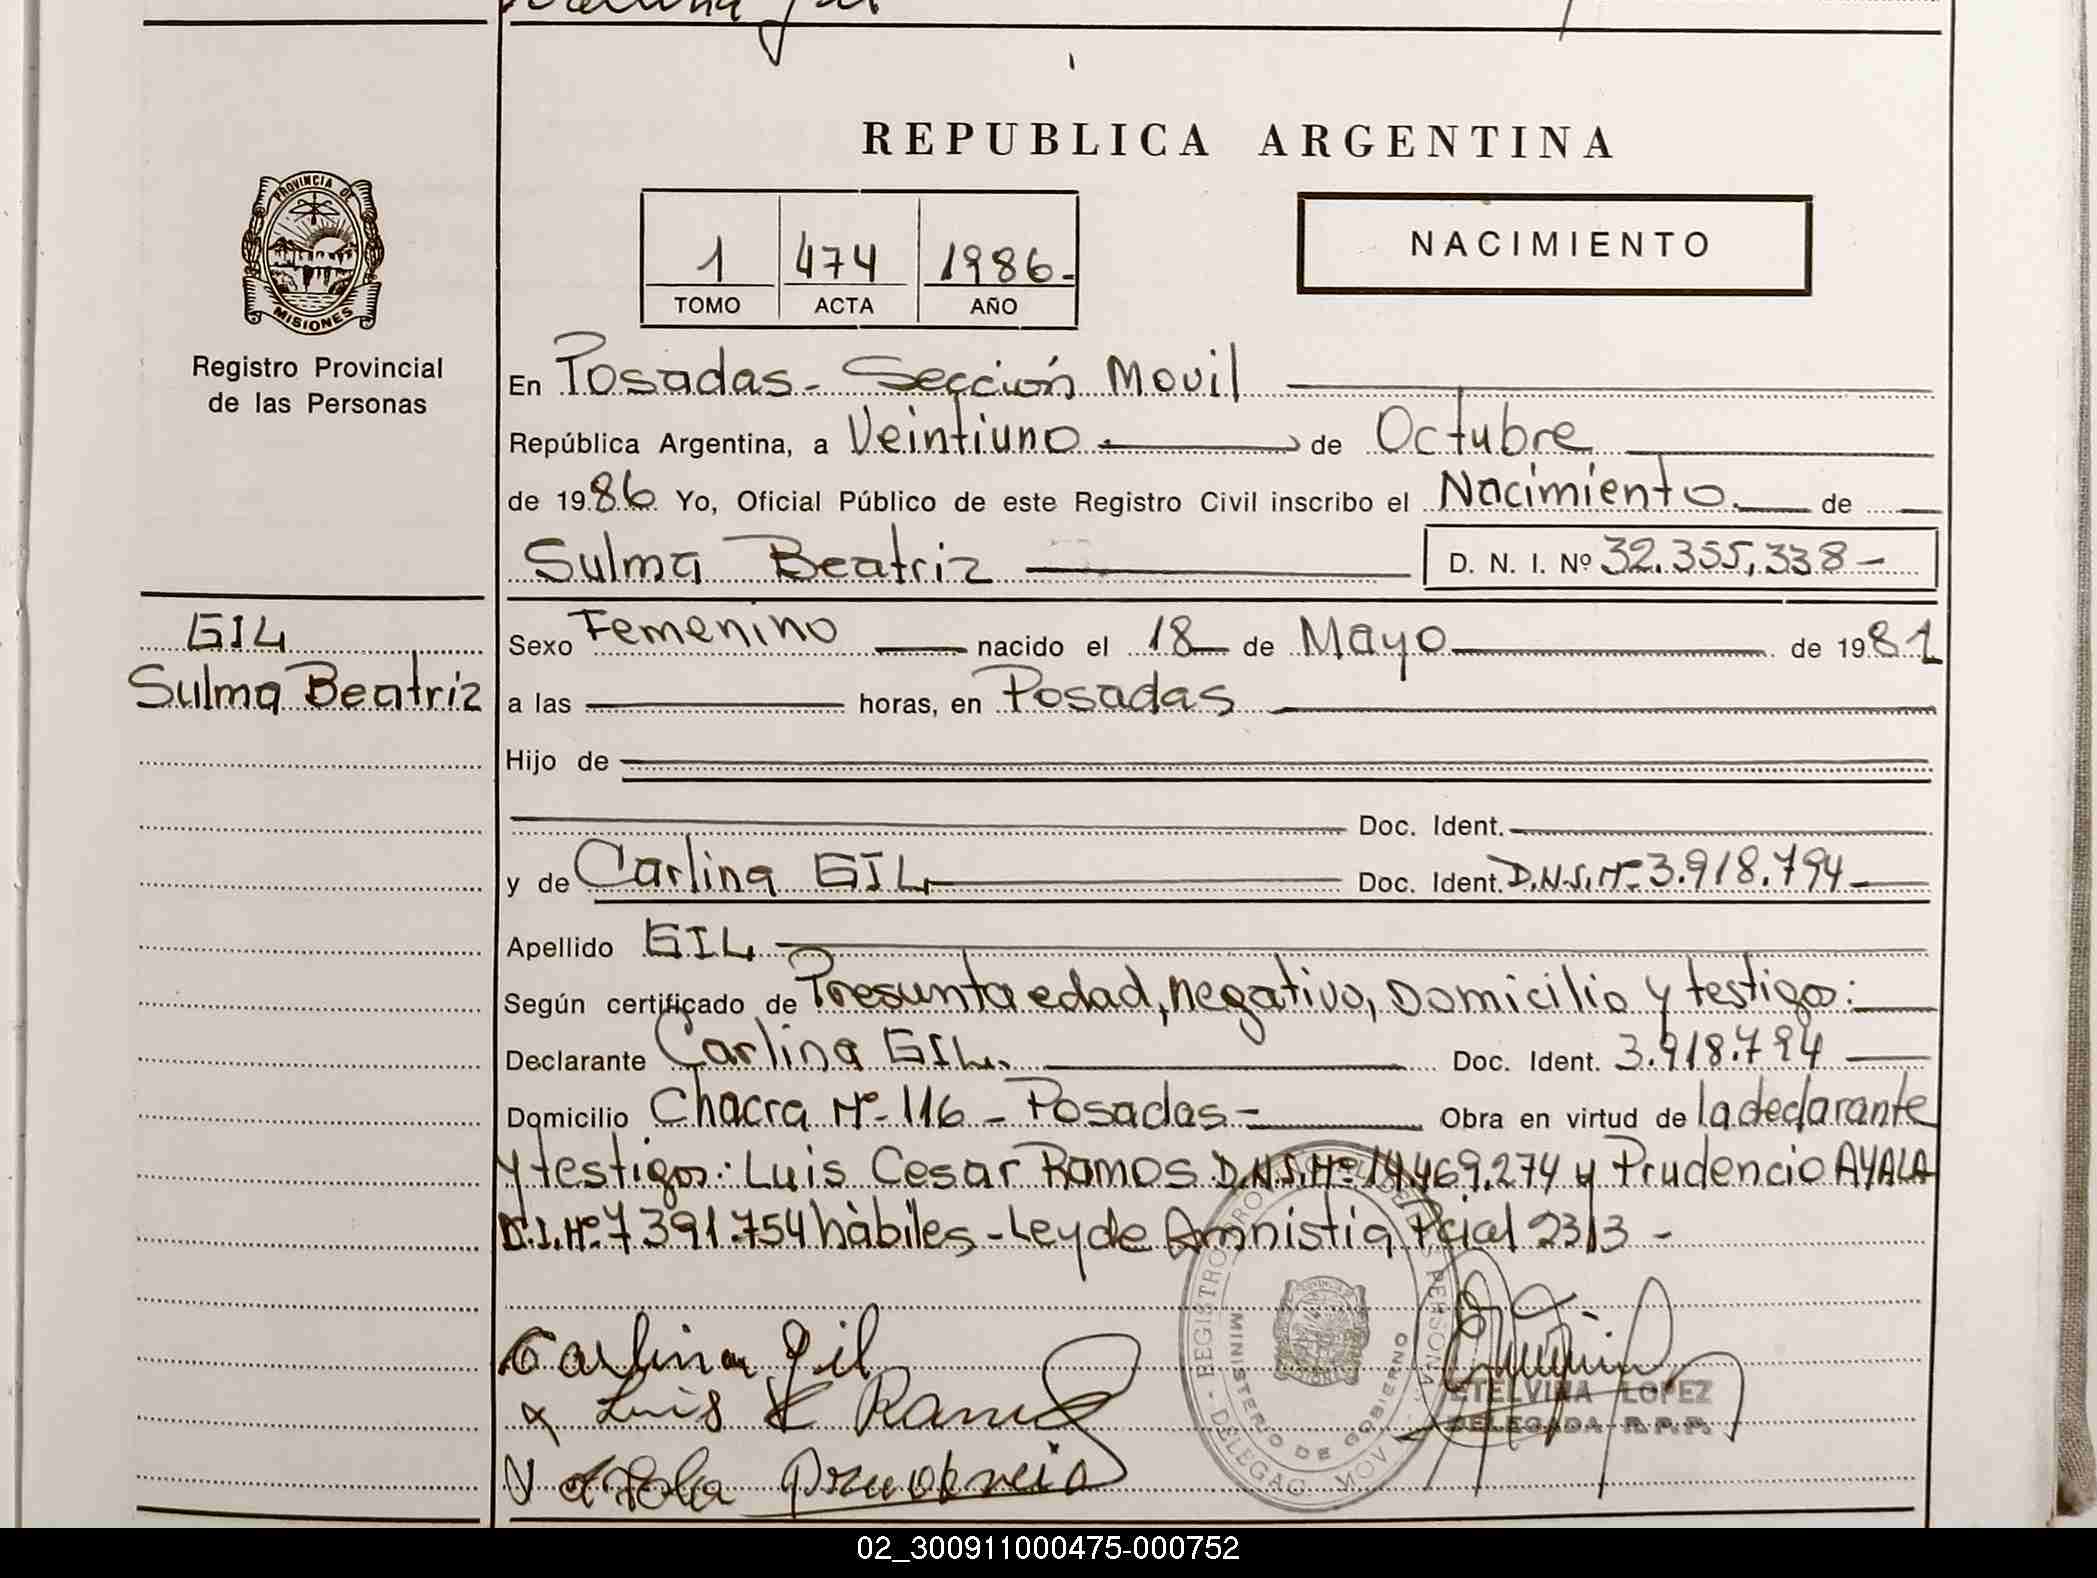 REPUBLICA ARGENTINA
PROVINCIA DE
MISIONES
Registro Provincial
de las Personas
1 474 1986-
TOMO ACTA AÑO
NACIMIENTO
En Posadas - Sección Movil
República Argentina, a Veintiuno de Octubre
de 1986 Yo, Oficial Público de este Registro Civil inscribo el Nacimiento de
Sulma Beatriz D. N. I. Nº 32.355,338-
GIL
Sulma Beatriz
Sexo Femenino nacido el 18 de Mayo de 1981
a las horas, en Posadas
Hijo de
Doc. Ident.
y de Carlina GIL Doc. Ident. D.N.I. Nº 3.918.794
Apellido GIL
Según certificado de Presunta edad, negativo, Domicilio y testigos:
Declarante Carlina GIL. Doc. Ident. 3.918.794
Domicilio Chacra Nº 116 - Posadas - Obra en virtud de la declarante
y testigos: Luis Cesar Ramos D.N.I. Nº 14.469.274 y Prudencio AYALA
D.I. Nº 7391.754 hàbiles - Ley de Amnistia Pcial 2313 -
Carlina Gil
Luis C Ramos
Ayala Prudencio
MINISTERIO DE GOBIERNO
ETELVINA LOPEZ
DELEGADA R.P.P.
02_300911000475-000752